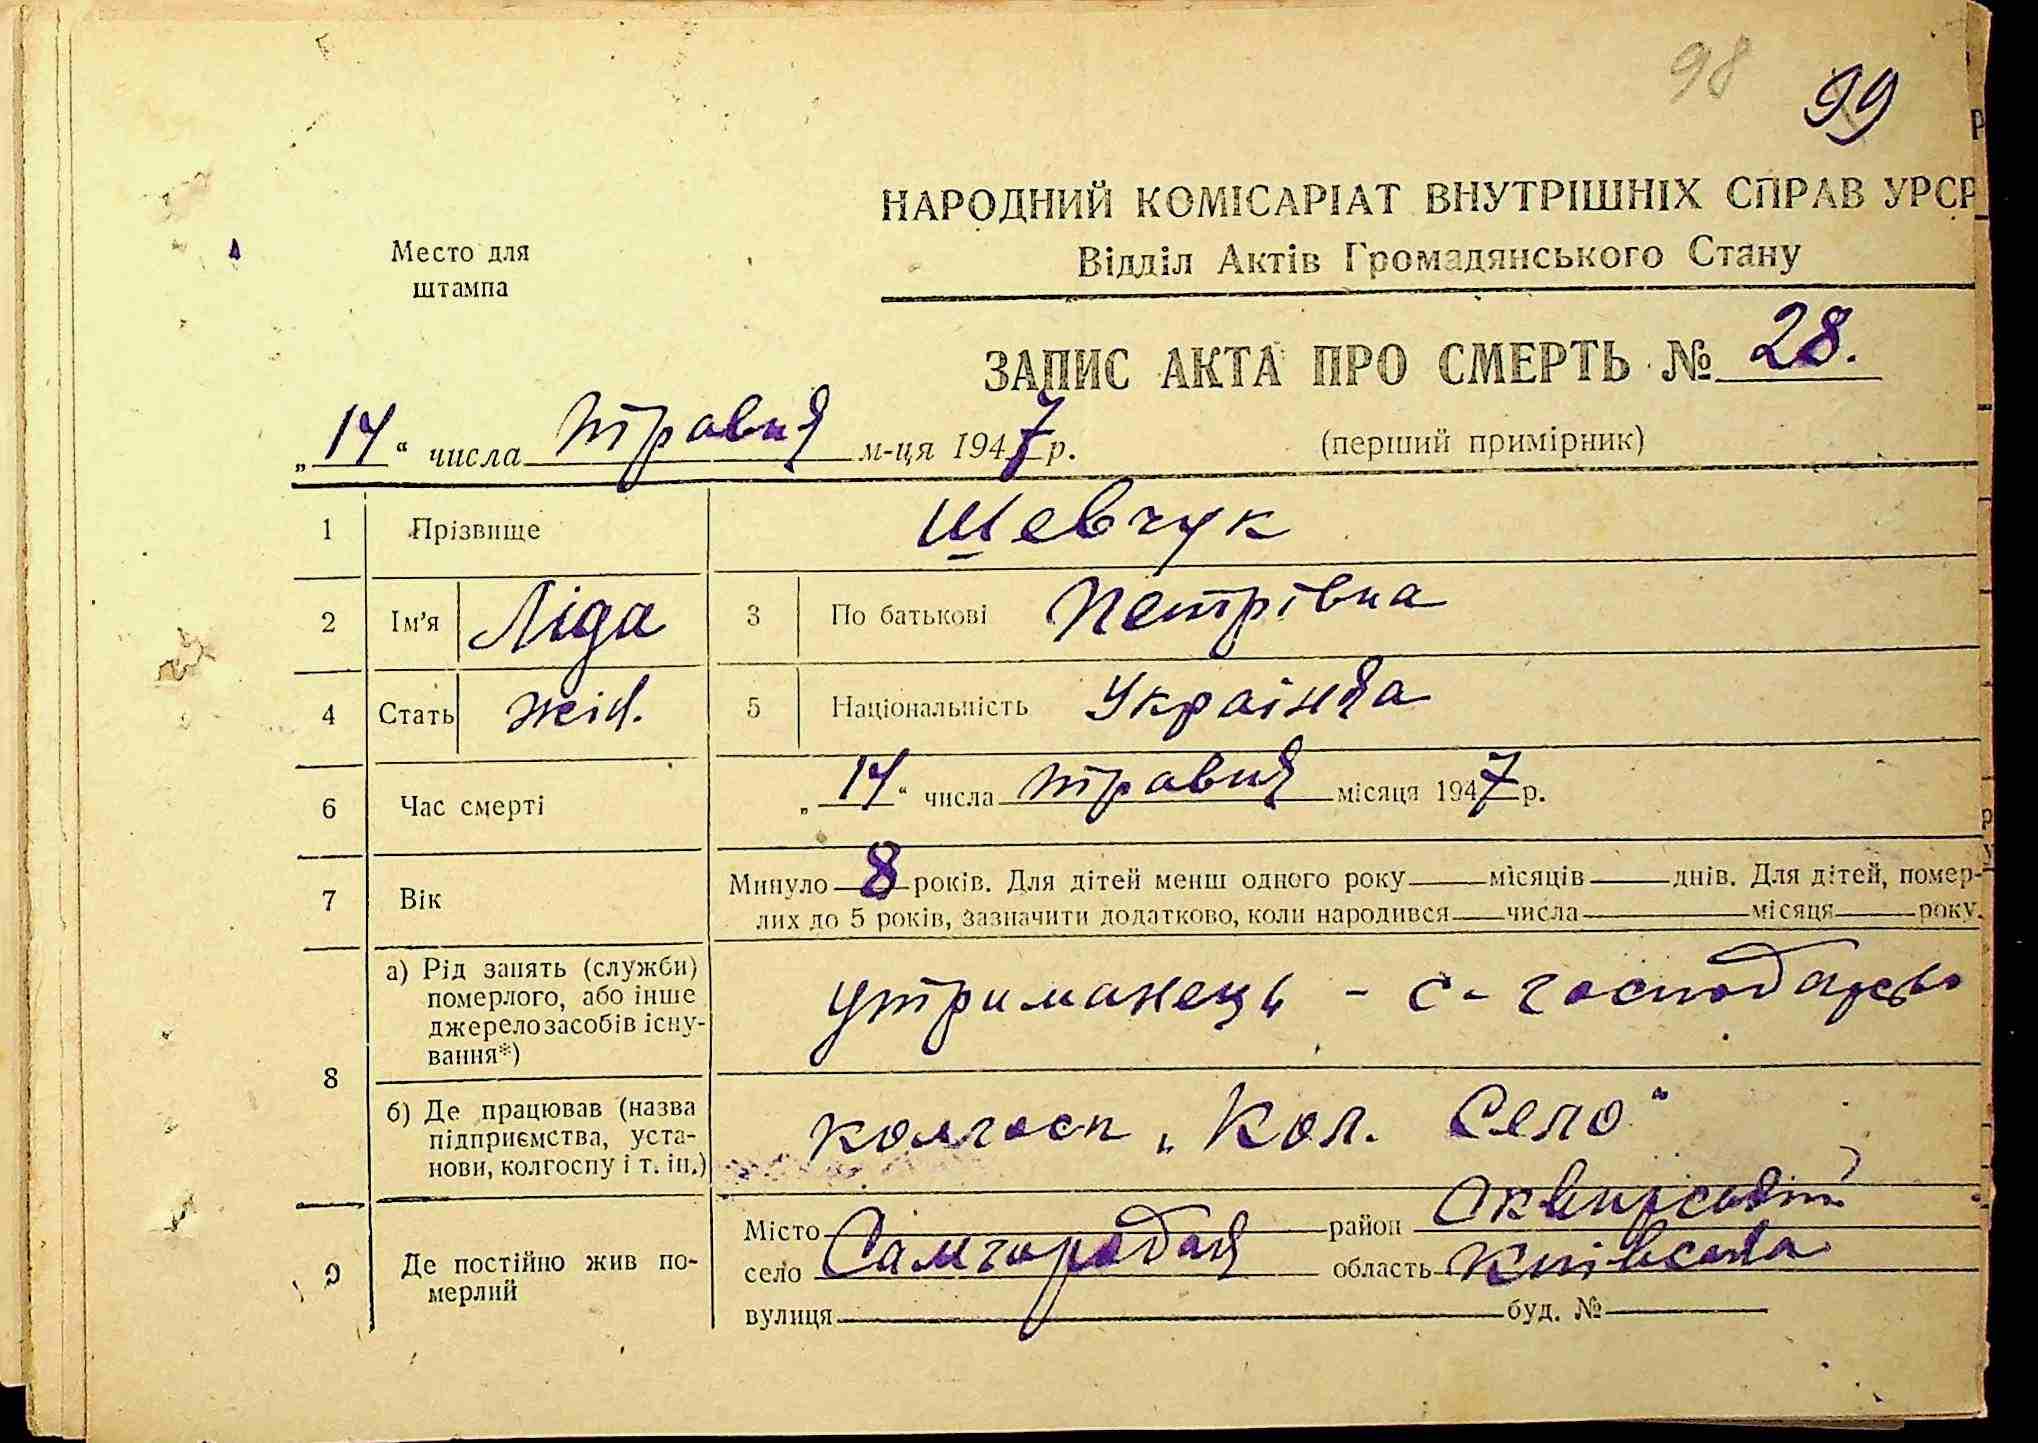 98
99
НАРОДНИЙ КОМІСАРІАТ ВНУТРІШНІХ СПРАВ УРСР
Место для
штампа
Відділ Актів Громадянського Стану
ЗАПИС АКТА ПРО СМЕРТЬ № 28.
„14“ числа травня м-ця 1947 р.
(перший примірник)
1 Прізвище Шевчук
2 Ім'я Ліда 3 По батькові Петрівна
4 Стать жін. 5 Національність Українка
6 Час смерті „14“ числа травня місяця 1947 р.
7 Вік Минуло 8 років. Для дітей менш одного року — місяців — днів. Для дітей, помер-
лих до 5 років, зазначити додатково, коли народився — числа — місяця — року.
8 а) Рід занять (служби)
померлого, або інше
джерело засобів існу-
вання*)
утриманець - с-господарсво
б) Де працював (назва
підприємства, уста-
нови, колгоспу і т. ін.)
колгосп „Кол. Село“
9 Де постійно жив по-
мерлий
Місто
село Самгородка
район Сквирський
область Київська
вулиця — буд. № —